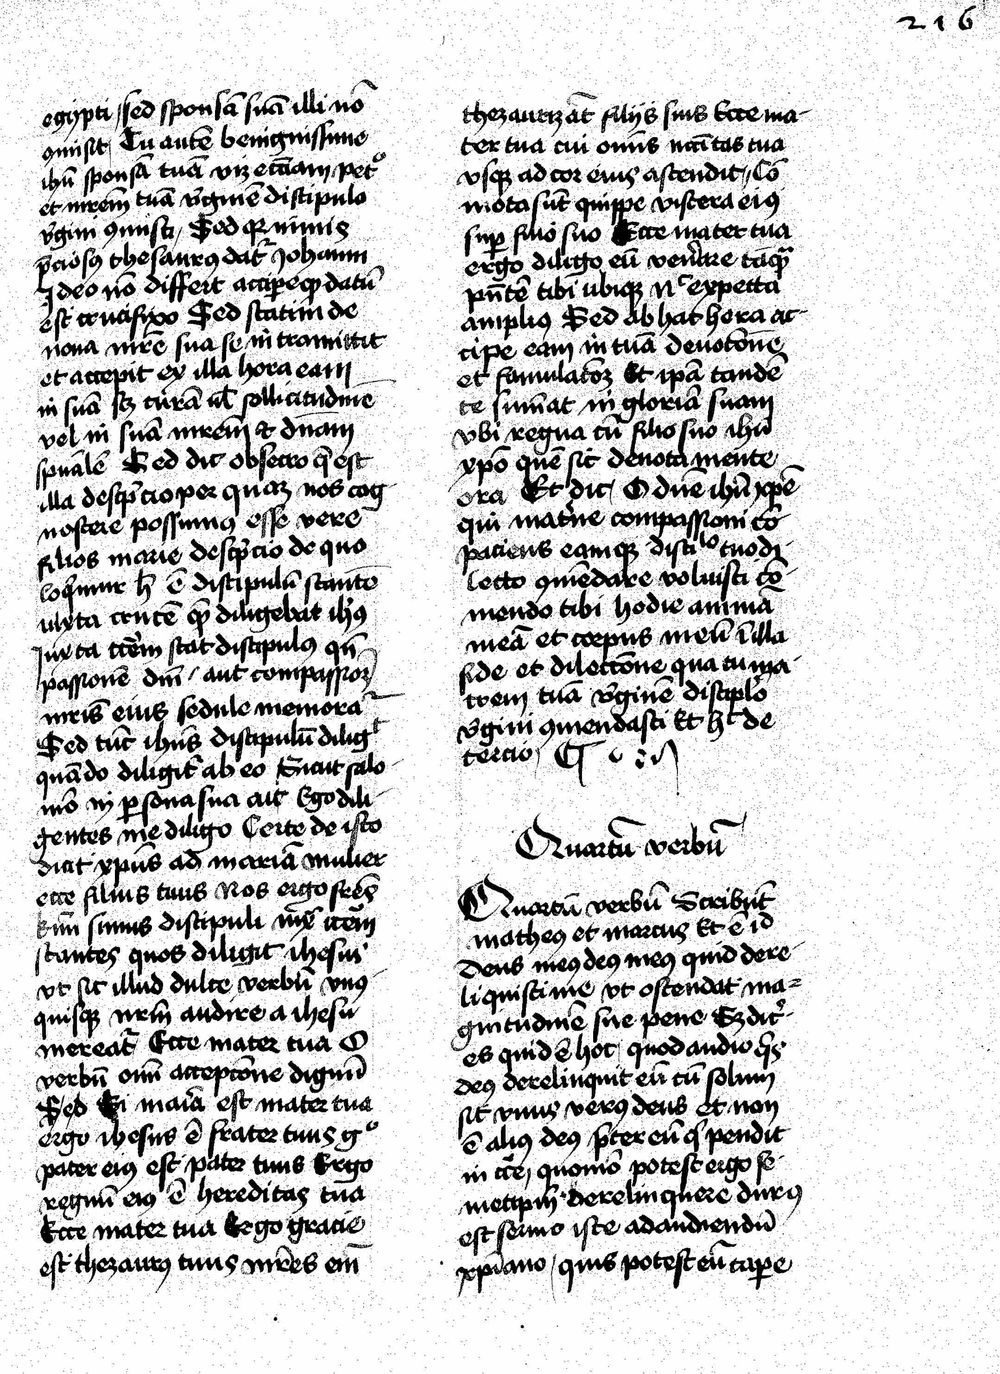 216
egipti / sed sponsā suā illi nō
ꝯmisit / Tu autē benignissime
ihū sponsā tuā viz ecc̄am pet°
et mrēm tuā v̄ginē discipulo
v̄gini ꝯmisti / Sed qꝛ nimis
p̄ciosꝰ thesaurꝰ dat᷑ Johanni
Ideo nō differt acciꝑe qd̄ datū
est crucifixo Sed statim de
noua mrē sua se intromittit
et accepit ex illa hora eam
in suā sꝫ curā ul̄ sollicitudinē
vel in suā mrēm et dnām
sp̄ualē Sed dic obsecro q̄ est
illa descpͥcio per quaꝫ nos cog
noscere possumꝰ esse vere
filios marie descpͥcio de quo
loqͥmur hͨ ē discipulū stantē
iuxta crucē qᷓꝫ diligebat ihꝰ
Iuxta crucē stat discipulꝰ qui
passionē dnī / aut compassionē
mris eius sedule memorat᷑
Sed tūc ihūs discipulū diligit
quādo diligit᷑ ab eo Sicut salo-
mō in ꝑsona sua ait Ego dili-
gentes me diligo Certe de isto
dicit xpūs ad mariā mulier
ecce filius tuus Nos ergo frēs
kīm simus discipuli iux̄ crucē
stantes quos diligit ihesus
vt sit illud dulce verbū vnꝰ
quisqꝫ nrm̄ audire a ihesu
mereat᷑ Ecce mater tua O
verbū omī accepcōne dignū
Sed Si maria est mater tua
ergo ihesus ē frater tuus g°
pater eius est pater tuus Ergo
regnū eiꝰ ē hereditas tua
Ecce mater tua Ergo gracie
est thezaurꝰ tuus mrēs enī
thezaurizāt filijs suis Ecce ma-
ter tua cui omīs nc̄citas tua
vsqꝫ ad cor eius ascendit / Cō-
mota sūt quippe viscera eiꝰ
suꝑ filio suo Ecce mater tua
ergo diligo eū ven̄are tāqᷓ
pn̄tē tibi ubiqꝫ nͨ expecta
ampliꝰ Sed ab hac hora ac-
cipe eam in tuā deuotōnē
et famulatōꝫ Et ipā tandē
te sum̄at in gloriā suam
vbi regnat cū filio suo ihū
xpō quē sic deuota mente
ora Et dic / O dnē ihū xpē
qui matͥne compassioni cō-
paciens eamqꝫ disci°lo tuo di-
lecto ꝯmēdare voluisti cō-
mendo tibi hodie animā
meā et corpus meū ī illa
fide et dileccōne qua tu ma-
trem tuā v̄ginē discipl̄o
v̄gini ꝯmendasti Et hͨ de
tercio
Quartū verbū
Quartū verbū Scribūt
matheꝰ et marcus Et ē id
Deus meꝰ deꝰ meꝰ quid dere-
liquisti me vt ostendat ma-
gnitudinē sue pene Sꝫ dic͛-
es quid ē hoc quod audio q̄s
deꝰ derelinquit eū cū solum
sit vnus verꝰ deus et non
ē aliꝰ deꝰ p̄ter eū qͥ pendit
in crͨe / quomō potest ergo se-
metipm̄ derelinquere durꝰ
est sermo iste ad audiendū
xpiano / quis potest eū caꝑe